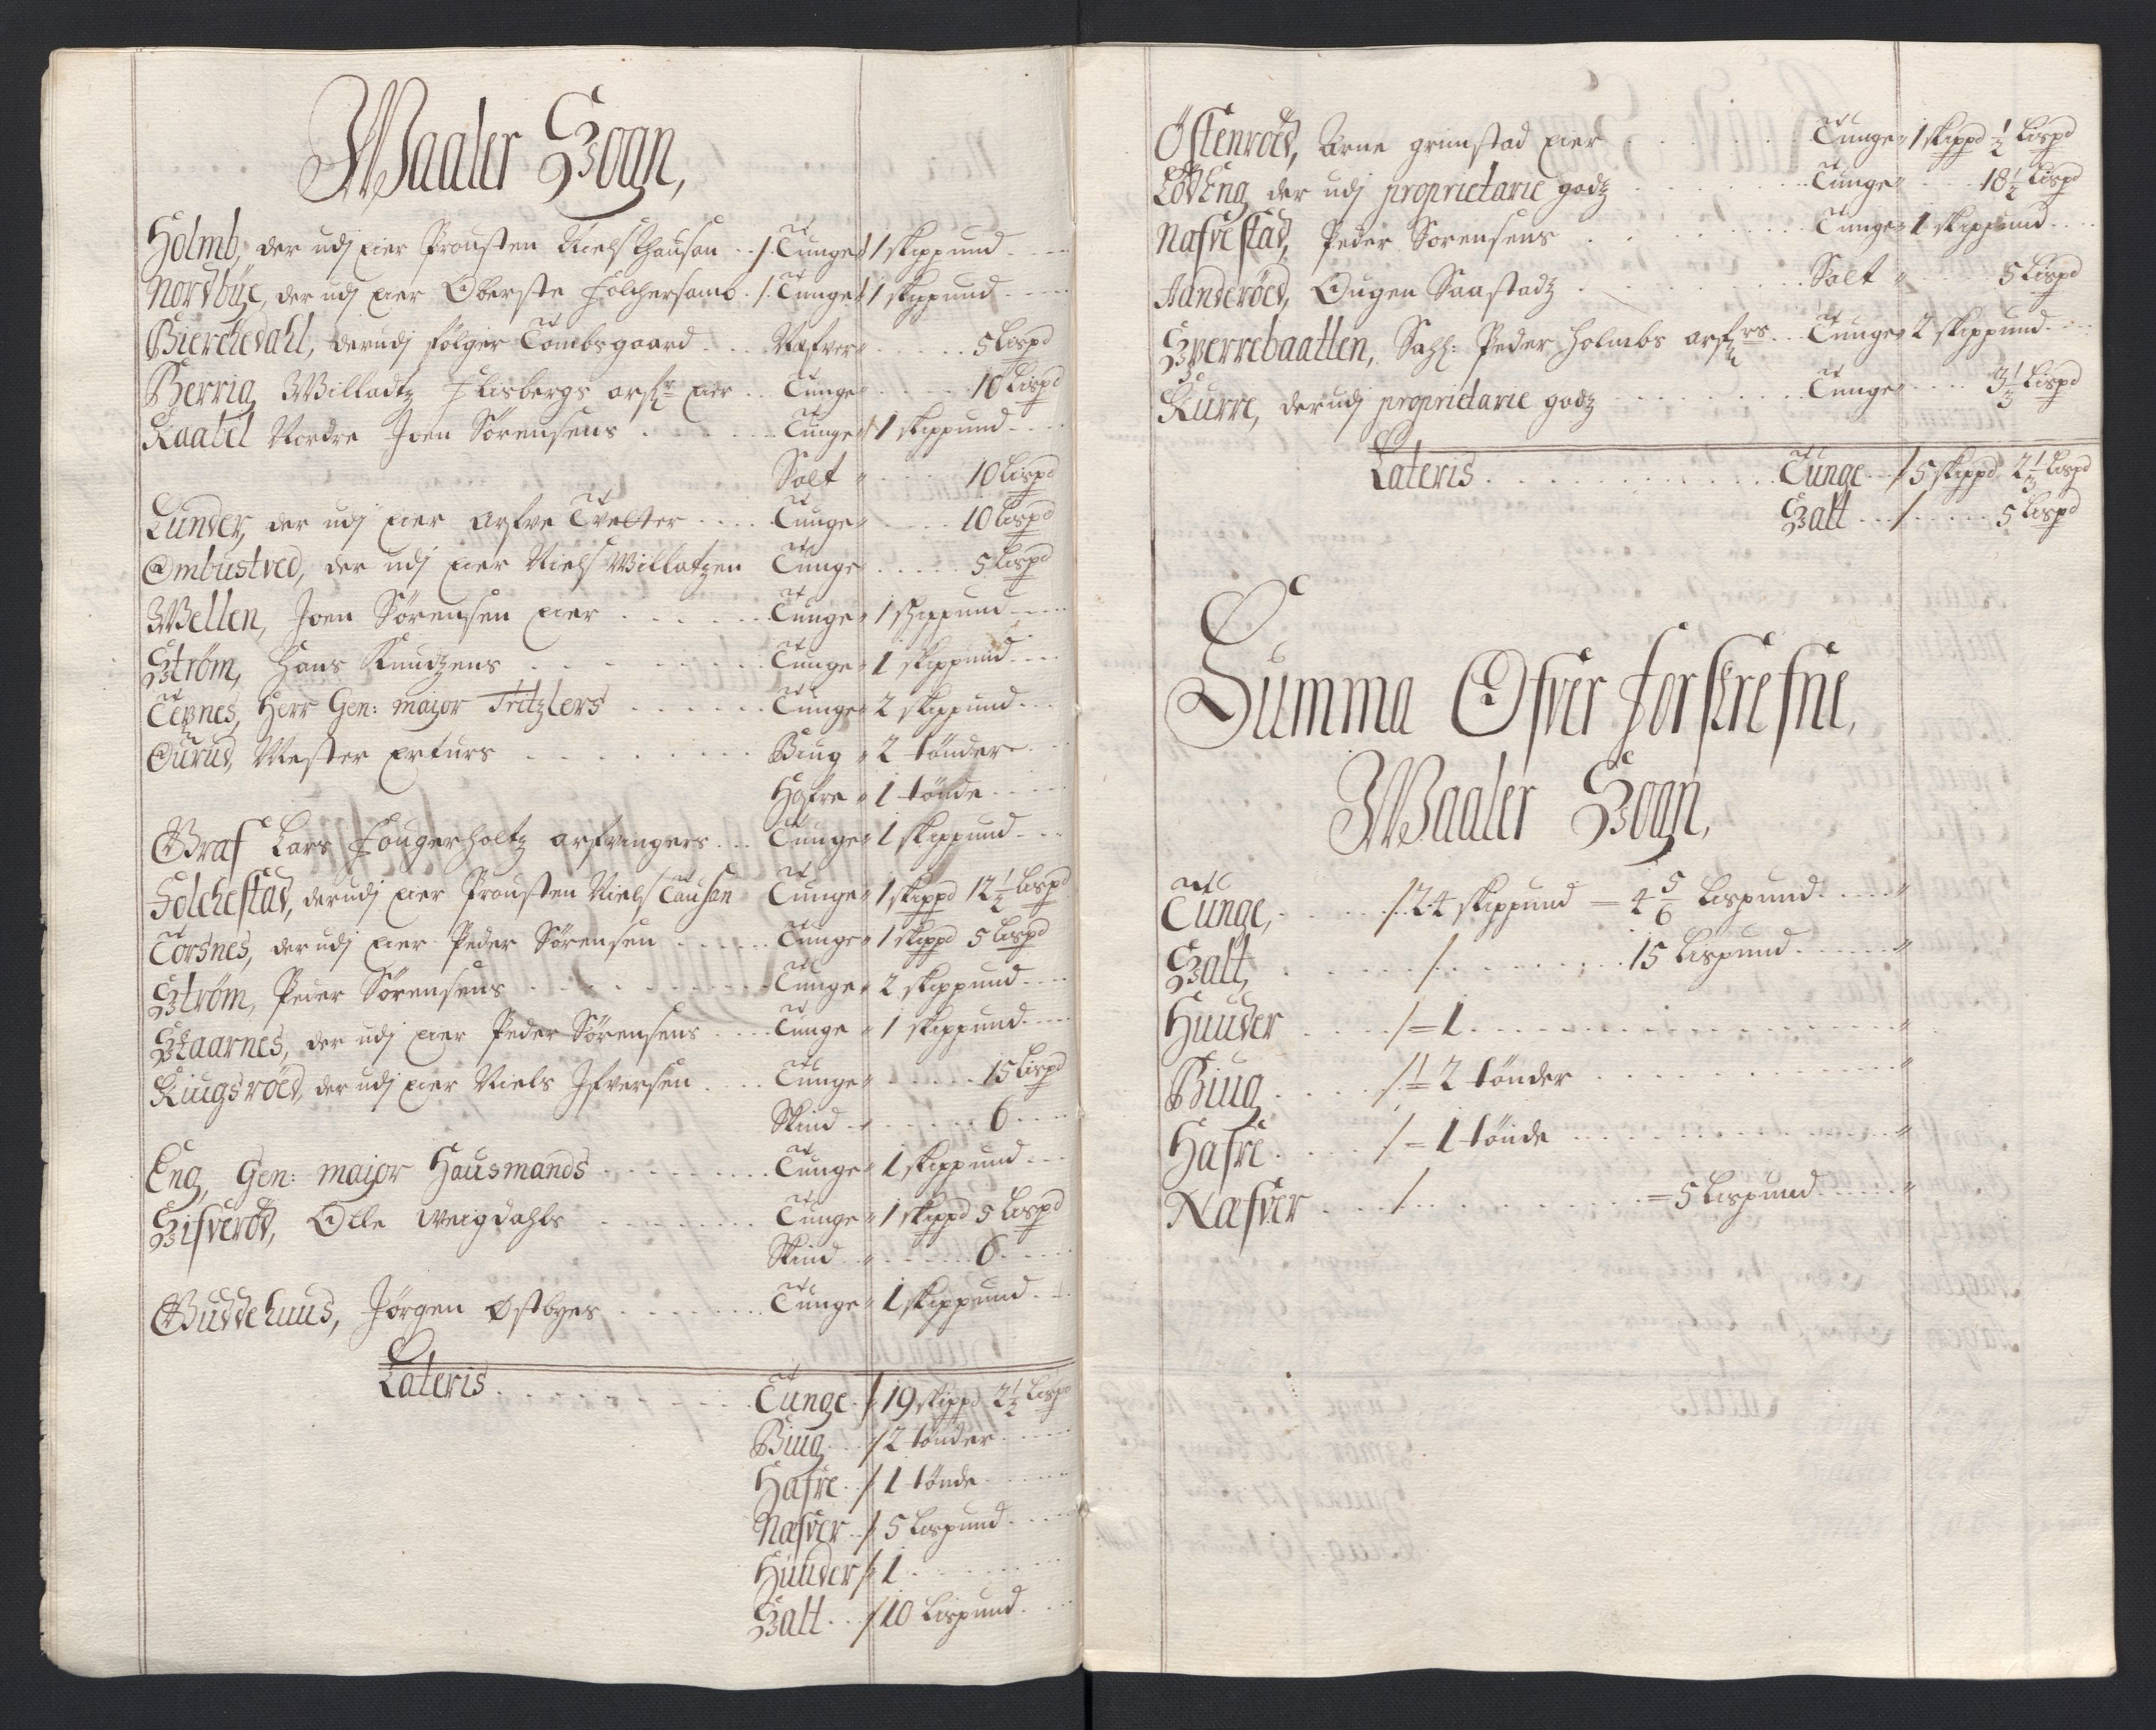 Waaler Sogn,
Holmb, der udj eier Prousten Niels Thausan . . / Tunge 1 skippund
Nordbÿe, der udj eier Oberste Folchersamb . / Tunge 1 skippund
Bierchedahl, derudj følger Tombsgaard . . . Næfver . . . . 5 Lispd
Berrig Willadtz Elisbergs arfr eier . . Tunge . . . 10 Lispd
Kaatel Nordre Joen Sørensens . . . . Tunge 1 skippund
Salt . . . 10 Lispd
Lunder, der udj eier Arfve Tvetter . . . Tunge . . . . 10 Lispd
Ombustved, der udj eier Niels Willatzen Tunge . . . . 5 Lispd
Wellen, Joen Sørensen eier . . . . Tunge 1 skippund
Strøm, Hans Knudzens . . . . Tunge 1 skippund
Tejnes, Herr Gen: major Tritzlers . . . . Tunge 2 skippund
Ourud, Mester Erturs . . . . Biug 2 tønder
Hafre 1 tønde
Graf Lars Fougerholtz arfvingers . . Tunge 1 skippund
Folchestad, derudj eier Prousten Niels Tausan Tunge 1 skippd 12½ Lispd
Torsnes, der udj eier Peder Sørensen . . . Tunge 1 skippd 5 Lispd
Strøm, Peder Sørensens . . . . Tunge 2 skippund
Skaarnes, der udj eier Peder Sørensens . . . Tunge 1 skippund
Kiugsrøed, der udj eier Niels Ifversen . . . Tunge . . . . 15 Lispd
Skind . . . . 6
Eng, Gen: major Hausmands . . . . Tunge 1 skippund
Sifverød, Olle Weigdahls . . . . Tunge 1 skippd 5 Lispd
Skind . . . . 6
Buddehuus, Jørgen Østbyes . . . . Tunge 1 skippund
Lateris . . . . Tunge / 19 skippd 2½ Lispd
Biug . . / 2 tønder
Hafre . . / 1 tønde
Næfver . . / 5 Lispund
Huuder / 1
Salt . . / 10 Lispund
Østenrød, Arne grimstad eier . . . . Tunge 1 skippd ½ Lispd
LøvEng der udj proprietarie godtz . . . . Tunge . . . 18½ Lispd
Nafvestad, Peder Sorensens . . . . Tunge 1 skippund
Aanderøed, Ougen Saastadz . . . . Salt . . . 5 Lispd
Sverrebaatten, Sahl: Peder Holmbs arfrs . . Tunge 2 skippund
Kurre, derudj proprietarie godz . . . . Tunge . . . 3⅓ Lispd
Lateris . . . . Tunge / 5 skippd 2⅓ Lispd
Salt . . / . . . 5 Lispd
Summa Ofver forskrefne,
Waaler Sogn,
Tunge, . . . / 24 skippund = 4⅚ Lispund
Salt, . . . / . . . 15 Lispund
Huuder . . . / = 1
Biug . . . / = 2 tønder
Hafre . . . / = 1 tønde
Næfver . . . / . . . = 5 Lispund